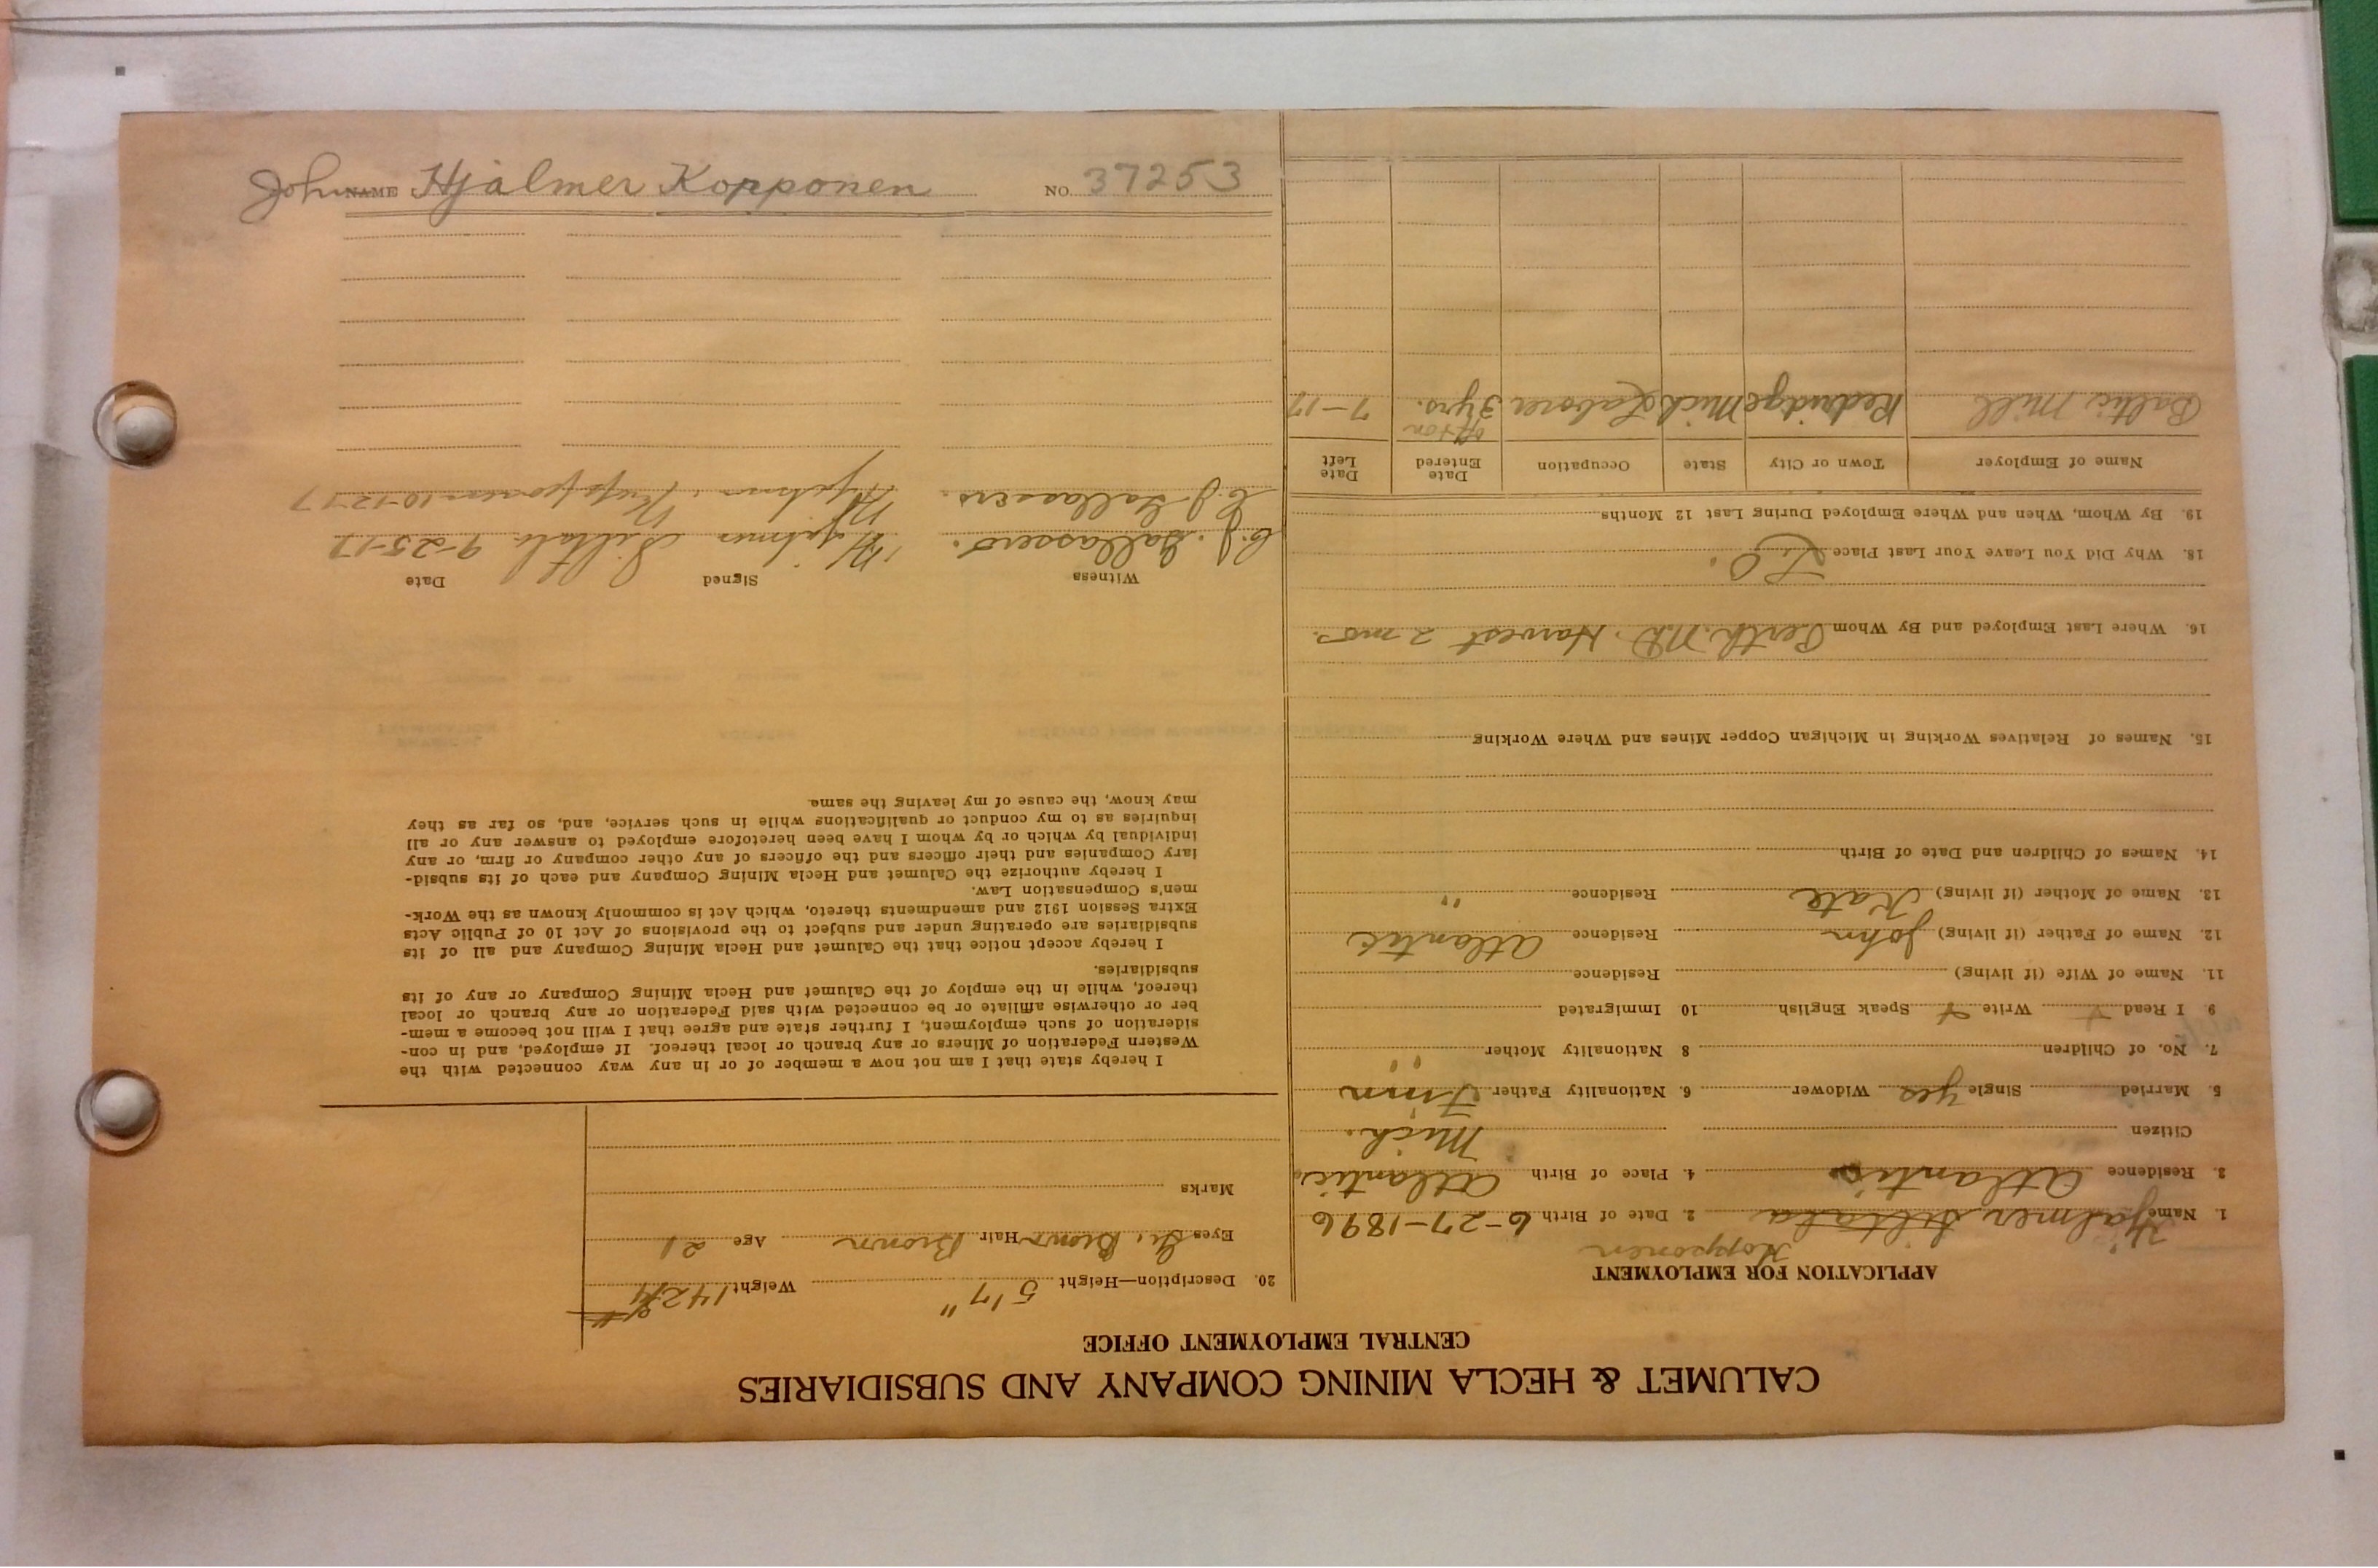 John NAME Hjalmer Kopponen NO. 37253
CALUMET & HECLA MINING COMPANY AND SUBSIDIARIES
CENTRAL EMPLOYMENT OFFICE
APPLICATION FOR EMPLOYMENT
Kopponen
1. Name Hjalmer Siltala 2. Date of Birth 6-27-1896
3. Residence Atlantic 4. Place of Birth Atlantic,
Citizen Mich.
5. Married Single yes Widower 6. Nationality Father Finn
7. No. of Children 8 Nationality Mother " "
9. I Read Write Speak English 10 Immigrated
11. Name of Wife (if living) Residence
12. Name of Father (if living) John Residence Atlantic
13. Name of Mother (if living) Kate Residence "
14. Names of Children and Date of Birth
15. Names of Relatives Working in Michigan Copper Mines and Where Working
16. Where Last Employed and By Whom Perth N.D. Harvest 2 mos.
18. Why Did You Leave Your Last Place
19. By Whom, When and Where Employed During Last 12 Months
Name of Employer Town or City State Occupation Date Entered Date Left
Baltic Mill Redridge Mich Laborer off & on 3 yrs. 7-17
20. Description—Height 5'7" Weight 142#
Eyes Hair Brown Age 21
Marks
I hereby state that I am not now a member of or in any way connected with the
Western Federation of Miners or any branch or local thereof. If employed, and in con-
sideration of such employment, I further state and agree that I will not become a mem-
ber or otherwise affiliate or be connected with said Federation or any branch or local
thereof, while in the employ of the Calumet and Hecla Mining Company or any of its
subsidiaries.
I hereby accept notice that the Calumet and Hecla Mining Company and all of its
subsidiaries are operating under and subject to the provisions of Act 10 of Public Acts
Extra Session 1912 and amendments thereto, which Act is commonly known as the Work-
men's Compensation Law.
I hereby authorize the Calumet and Hecla Mining Company and each of its subsid-
iary Companies and their officers and the officers of any other company or firm, or any
individual by which or by whom I have been heretofore employed to answer any or all
inquiries as to my conduct or qualifications while in such service, and, so far as they
may know, the cause of my leaving the same.
Witness Signed Date
C.J. Hjalmer Siltala 9-25-17
C.J. Hjalmer Kopponen 10-12-17